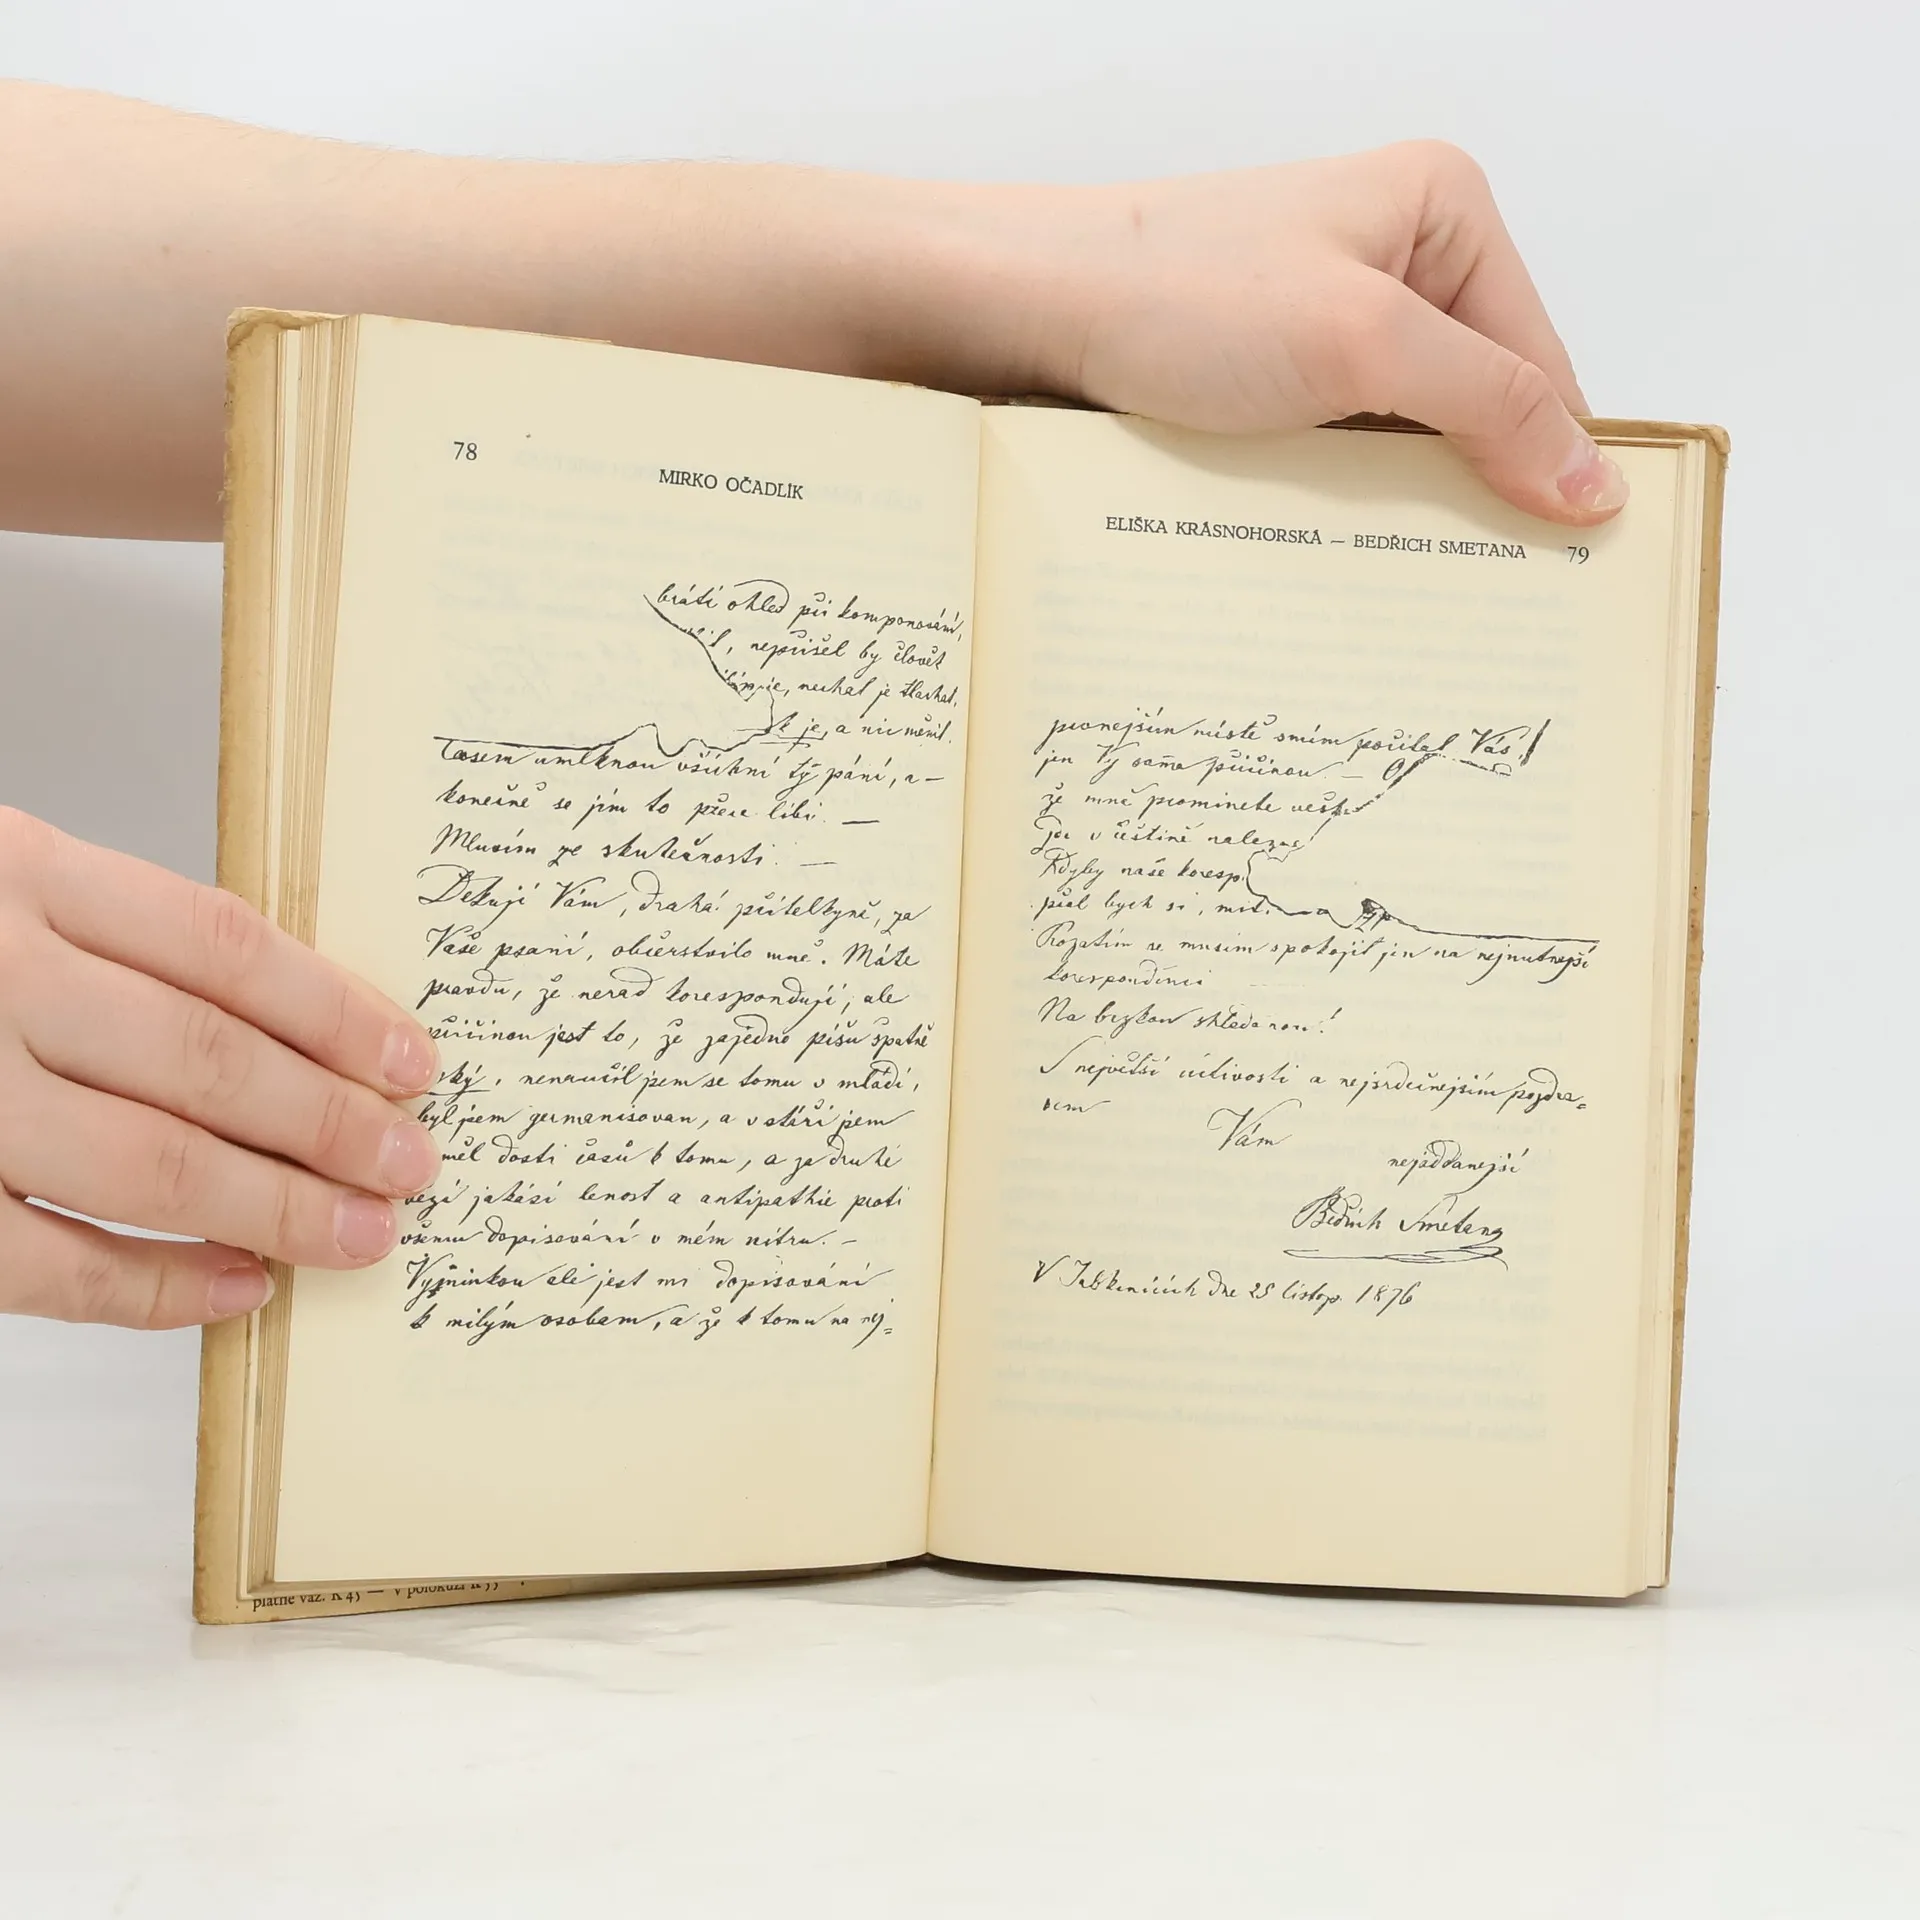 78
MIRKO OČADLÍK
bráti ohled při komponování,
il, nepřišel by člověk
nechat je tlachat,
je, a nic měnit.
Časem umlknou všichni tý páni, a-
konečně se jim to přece líbí. —
Mluvím ze skutečnosti. —
Děkuji Vám, drahá přítelkyně, za
Vaše psaní, občerstvilo mně. Máte
pravdu, že nerad koresponduji, ale
příčinou jest to, že zajedno píšu špatně
ský, nenaučil jsem se tomu v mládí,
byl jsem germanisovan, a v stáří jsem
měl dosti časů k tomu, a za druhé
vězí jakási lenost a antipathie proti
všemu dopisování v mém nitru. —
Vyjminkou ale jest mi dopisování
k milým osobam, a že k tomu na nej=
ELIŠKA KRÁSNOHORSKÁ — BEDŘICH SMETANA 79
prvnejším místě smím počítat Vás!
jen Vy sama příčinou. —
že mně prominete
v češtině nalezne
Kdyby naše koresp.
přál bych si, mít
Prozatím se musím spokojit jen na nejnutnejší
korespondenci
Na brzkou shledanou!
S největší úctivostí a nejsrdečnejším pozdra=
vem
Vám
nejoddanejší
Bedřich Smetana
V Jabkenicích dne 25 listop. 1876
platně váz. K 45 — V polokůži K 55